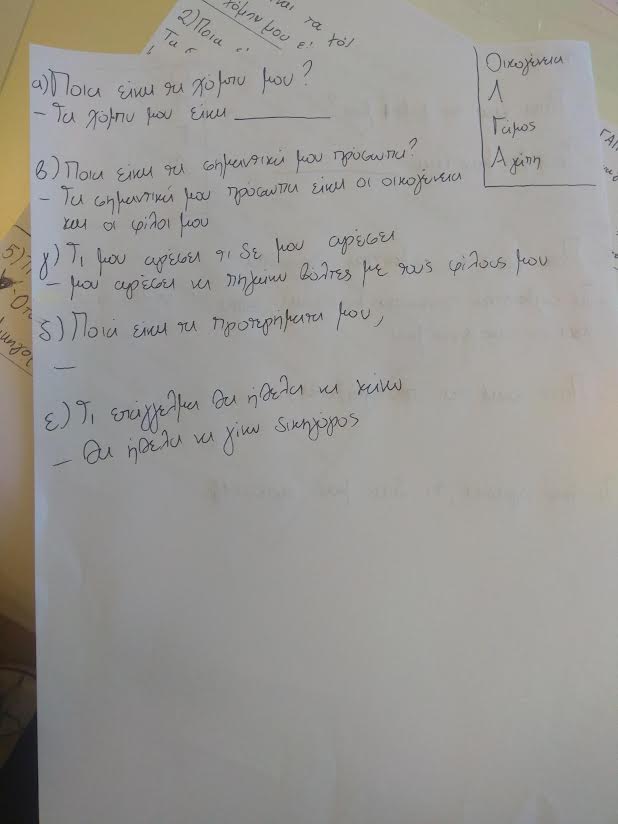 2) Ποια
χόμπυ μου ει
τα
Τα
α) Ποια είναι τα χόμπυ μου?
- Τα χόμπυ μου είναι
Οικογένεια
Λ
Γάμος
Αγάπη
β) Ποια είναι τα σημαντικά μου πρόσωπα?
- Τα σημαντικά μου πρόσωπα είναι οι οικογένεια
και οι φίλοι μου
γ) Τι μου αρέσει τι δε μου αρέσει
- μου αρέσει να πηγαίνω βόλτες με τους φίλους μου
δ) Ποιά είναι τα προτερήματα μου,
-
ε) Τι επάγγελμα θα ήθελα να κάνω
- θα ήθελα να γίνω δικηγόρος
5)